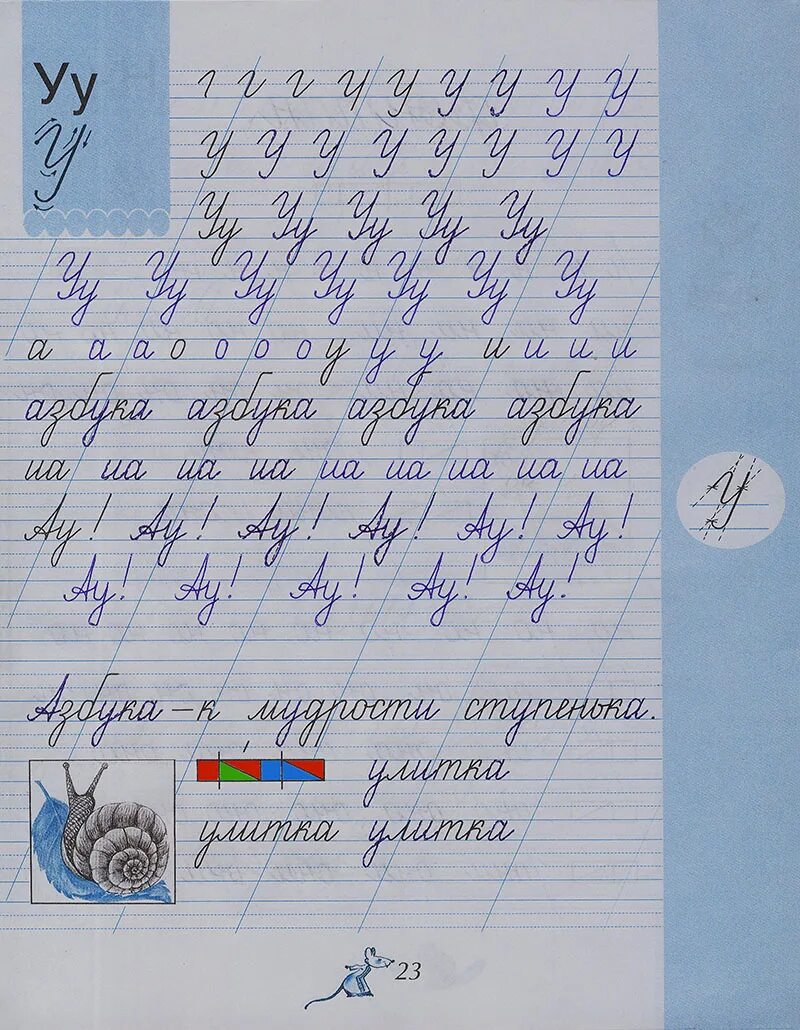 Уу
У
У У У У У
У У У У У У У У У
Уу Уу Уу Уу Уу
Уу Уу Уу Уу Уу Уу Уу
а а а о о о о у у у и и и и
азбука азбука азбука азбука
иа иа иа иа иа иа иа иа иа
У
Ау! Ау! Ау! Ау! Ау! Ау!
Ау! Ау! Ау! Ау! Ау!
Азбука – к мудрости ступенька.
улитка
улитка улитка
23